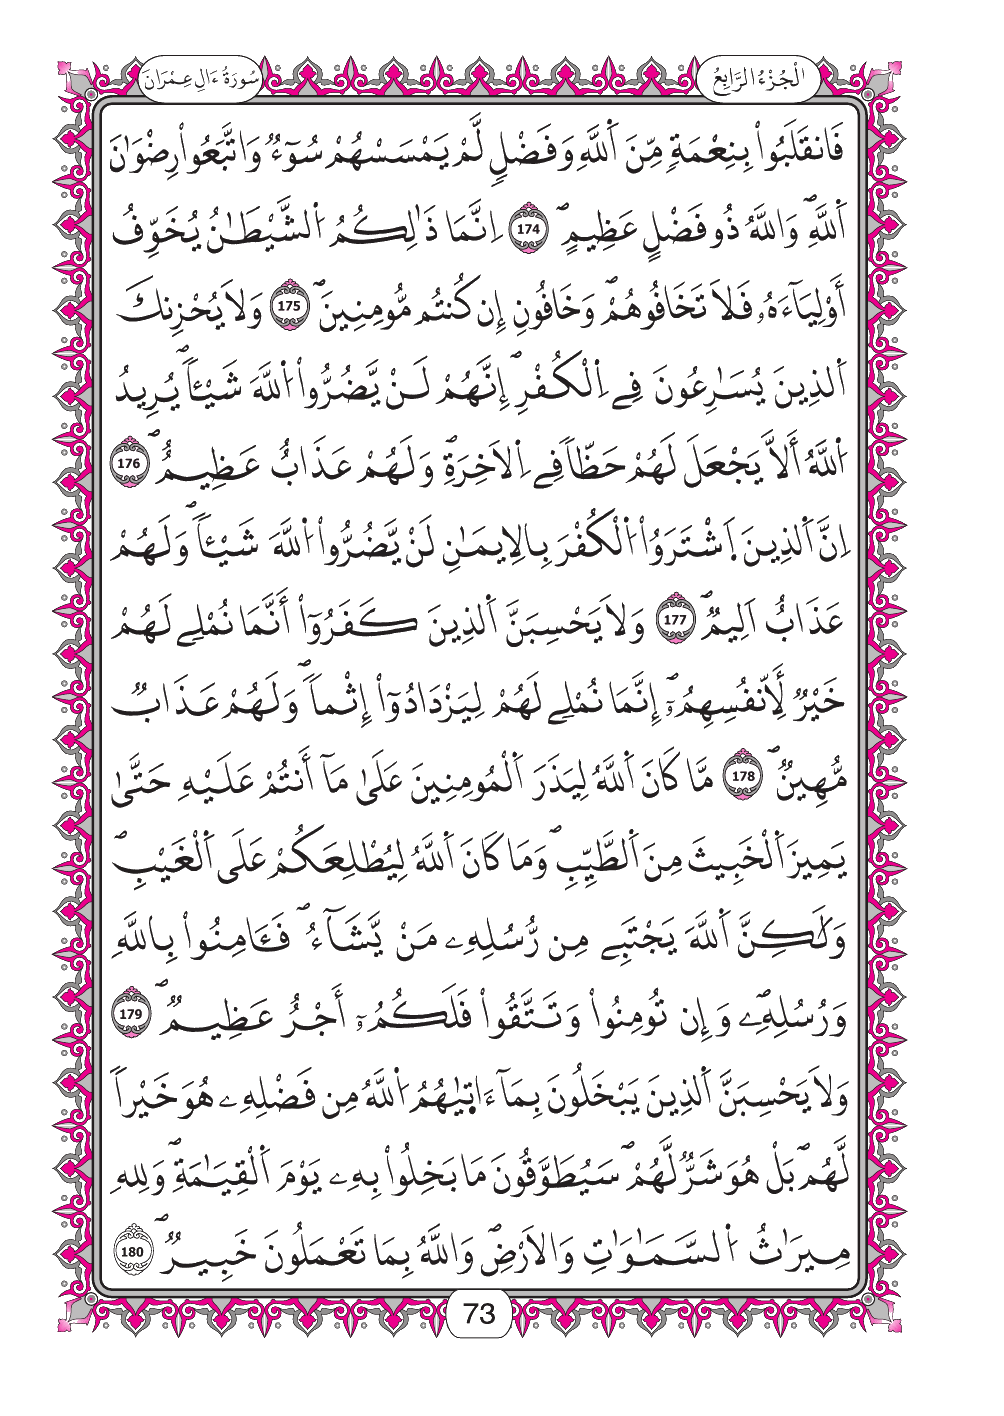 الْجُزْءُ الرَّابِعُ
سُورَةُ ءَالِ عِمْرَانَ
فَانقَلَبُواْ بِنِعْمَةٍ مِّنَ اَ۬للَّهِ وَفَضْلٍ لَّمْ يَمْسَسْهُمْ سُوٓءٌ وَاتَّبَعُواْ رِضْوَٰنَ
اَ۬للَّهِۖ وَاللَّهُ ذُو فَضْلٍ عَظِيمٍۖ 174 اِنَّمَا ذَٰلِكُمُ اُ۬لشَّيْطَٰنُ يُخَوِّفُ
أَوْلِيَآءَهُۥ فَلاَ تَخَافُوهُمْۖ وَخَافُونِ إِن كُنتُم مُّومِنِينَۖ 175 وَلاَ يُحْزِنكَ
اَ۬لذِينَ يُسَٰرِعُونَ فِے اِ۬لْكُفْرِۖ إِنَّهُمْ لَنْ يَّضُرُّواْ اُ۬للَّهَ شَيْـٔاًۖ يُرِيدُ
اُ۬للَّهُ أَلاَّ يَجْعَلَ لَهُمْ حَظّاً فِے اِ۬لاَخِرَةِۖ وَلَهُمْ عَذَابٌ عَظِيمٌۖ 176
اِنَّ اَ۬لذِينَ اَ۪شْتَرَوُاْ اُ۬لْكُفْرَ بِالِايمَٰنِ لَنْ يَّضُرُّواْ اُ۬للَّهَ شَيْـٔاًۖ وَلَهُمْ
عَذَابٌ اَلِيمٌۖ 177 وَلاَ يَحْسِبَنَّ اَ۬لذِينَ كَفَرُوٓاْ أَنَّمَا نُمْلِے لَهُمْ
خَيْرٌ لِّأَنفُسِهِمُۥٓۖ إِنَّمَا نُمْلِے لَهُمْ لِيَزْدَادُوٓاْ إِثْماًۖ وَلَهُمْ عَذَابٌ
مُّهِينٌۖ 178 مَّا كَانَ اَ۬للَّهُ لِيَذَرَ اَ۬لْمُومِنِينَ عَلَىٰ مَآ أَنتُمْ عَلَيْهِ حَتَّىٰ
يَمِيزَ اَ۬لْخَبِيثَ مِنَ اَ۬لطَّيِّبِۖ وَمَا كَانَ اَ۬للَّهُ لِيُطْلِعَكُمْ عَلَى اَ۬لْغَيْبِۖ
وَلَٰكِنَّ اَ۬للَّهَ يَجْتَبِے مِن رُّسُلِهِۦ مَنْ يَّشَآءُۖ فَـَٔامِنُواْ بِاللَّهِ
وَرُسُلِهِۦۖ وَإِن تُومِنُواْ وَتَتَّقُواْ فَلَكُمُۥٓ أَجْرٌ عَظِيمٌۖ 179
وَلاَ يَحْسِبَنَّ اَ۬لذِينَ يَبْخَلُونَ بِمَآ ءَات۪يٰهُمُ اُ۬للَّهُ مِن فَضْلِهِۦ هُوَ خَيْراً
لَّهُمۖ بَلْ هُوَ شَرٌّ لَّهُمْۖ سَيُطَوَّقُونَ مَا بَخِلُواْ بِهِۦ يَوْمَ اَ۬لْقِيَٰمَةِۖ وَلِلهِ
مِيرَٰثُ اُ۬لسَّمَٰوَٰتِ وَالاَرْضِۖ وَاللَّهُ بِمَا تَعْمَلُونَ خَبِيرٌۖ 180
73